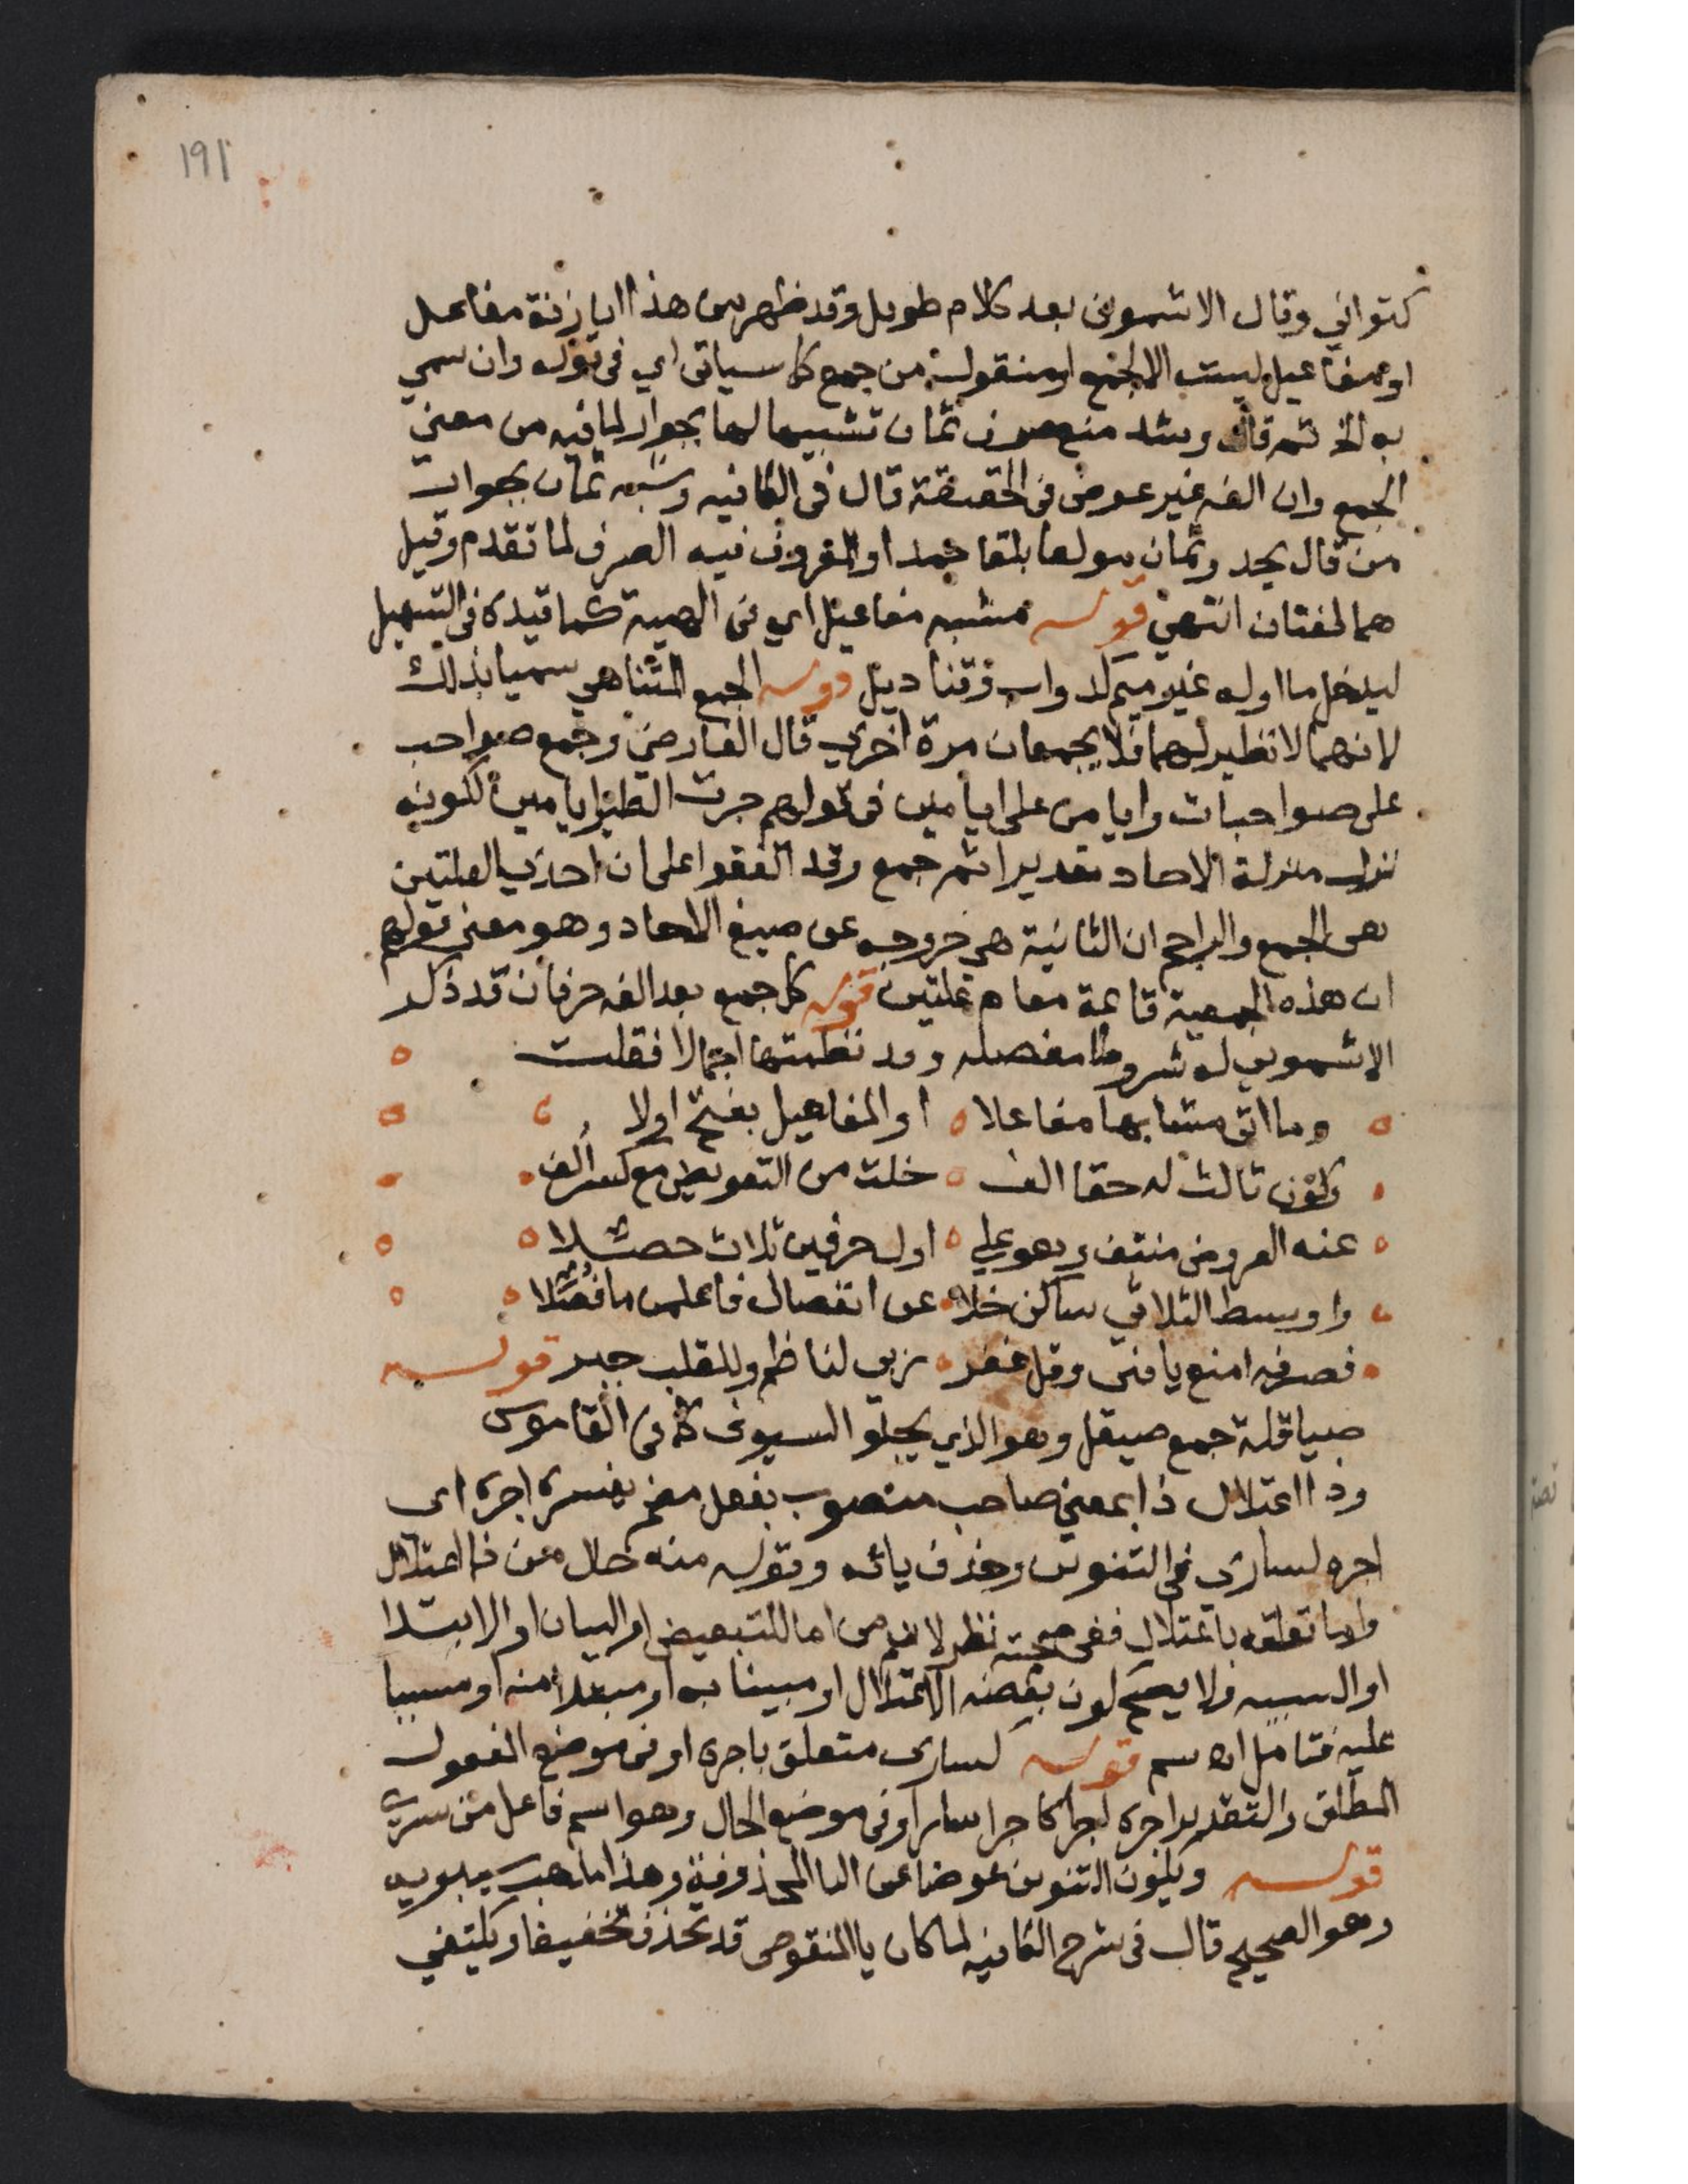 ١٩١
كتواني وقال الاشموني بعد كلام طويل وقد ظهر من هذا ان زنة مفاعل
او مفاعيل ليست الا لجمع او منقوله من جمع كما سياتي اي في قوله وان سمي
به الخ ثم قال وشذ منع صرف ثمان تشبيها لها بجوار لما فيه من معني
الجمع وان الفه غير عوض في الحقيقة قال في الكافيه وشبه ثمان بجوار
من قال يحد وثمان مولعا بلقاحها والمعروف فيه الصرف لما تقدم وقيل
هما لغتان انتهي قوله مشبه مفاعيل اي في الهيية كما قيده في التسهيل
ليدخل ما اوله غير ميم كدواب وقناديل قوله الجمع المتناهي سميا بذلك
لانهما لا نظير لهما فلا يجمعان مرة اخري قال الفارضي وجمع صواحب
على صواحبات وايامن على ايامين في قولهم جرت الطير ايامين لكونه
نزل منزلة الاحاد تقديرا ثم جمع وقد اتفقوا على ان احدي العلتين
هي الجمع والراجح ان الثانية هي خروجه عن صيغ الاحاد وهو معني قولهم
ان هذه الجمعية قائمة مقام علتين قوله كل جمع بعد الفه حرفان قد ذكر
الاشموني له شروطا مفصله وقد نظمتها اجمالا فقلت
وما اتى مشابها مفاعلا او المفاعيل بفتح اولا
وكون ثالث له حقا الف خلت من التعويض مع كسر الف
عنه العروض منتف وهو علي اول حرفين ثلاث حصلا
واوسط الثلاثي ساكن خلا عن انفصال فاعلمن ما فصلا
فصرفه امنع يا فتى وقل غفر ربي لناظم وللقلب جبر قوله
صياقلة جمع صيقل وهو الذي يجلو السيوف كما في القاموس
وذا اعتلال ذا بمعني صاحب منصوب بفعل مضمر يفسره اجره اي
اجره لساري في التنوين وحذف يائه وقوله منه حال من ذا اعتلال
واما تعلقه باعتلال ففي صحته نظر لان من اما للتبعيض او البيان او الابتدا
او السببيه ولا يصح كون بعضه الاعتلال او مبينا به او مبتدا منه او مسببا
عليه فتامل اه سم قوله لساري متعلق باجره او في موضع المفعول
المطلق والتقدير اجره اجرا كاجرا سار او في موضع الحال وهو اسم فاعل من سري
قوله ويكون التنوين عوضا عن اليا المحذوفة وهذا مذهب سيبويه
وهو الصحيح قال في شرح الكافيه لما كان يا المنقوص قد تحذف تخفيفا ويكتفي